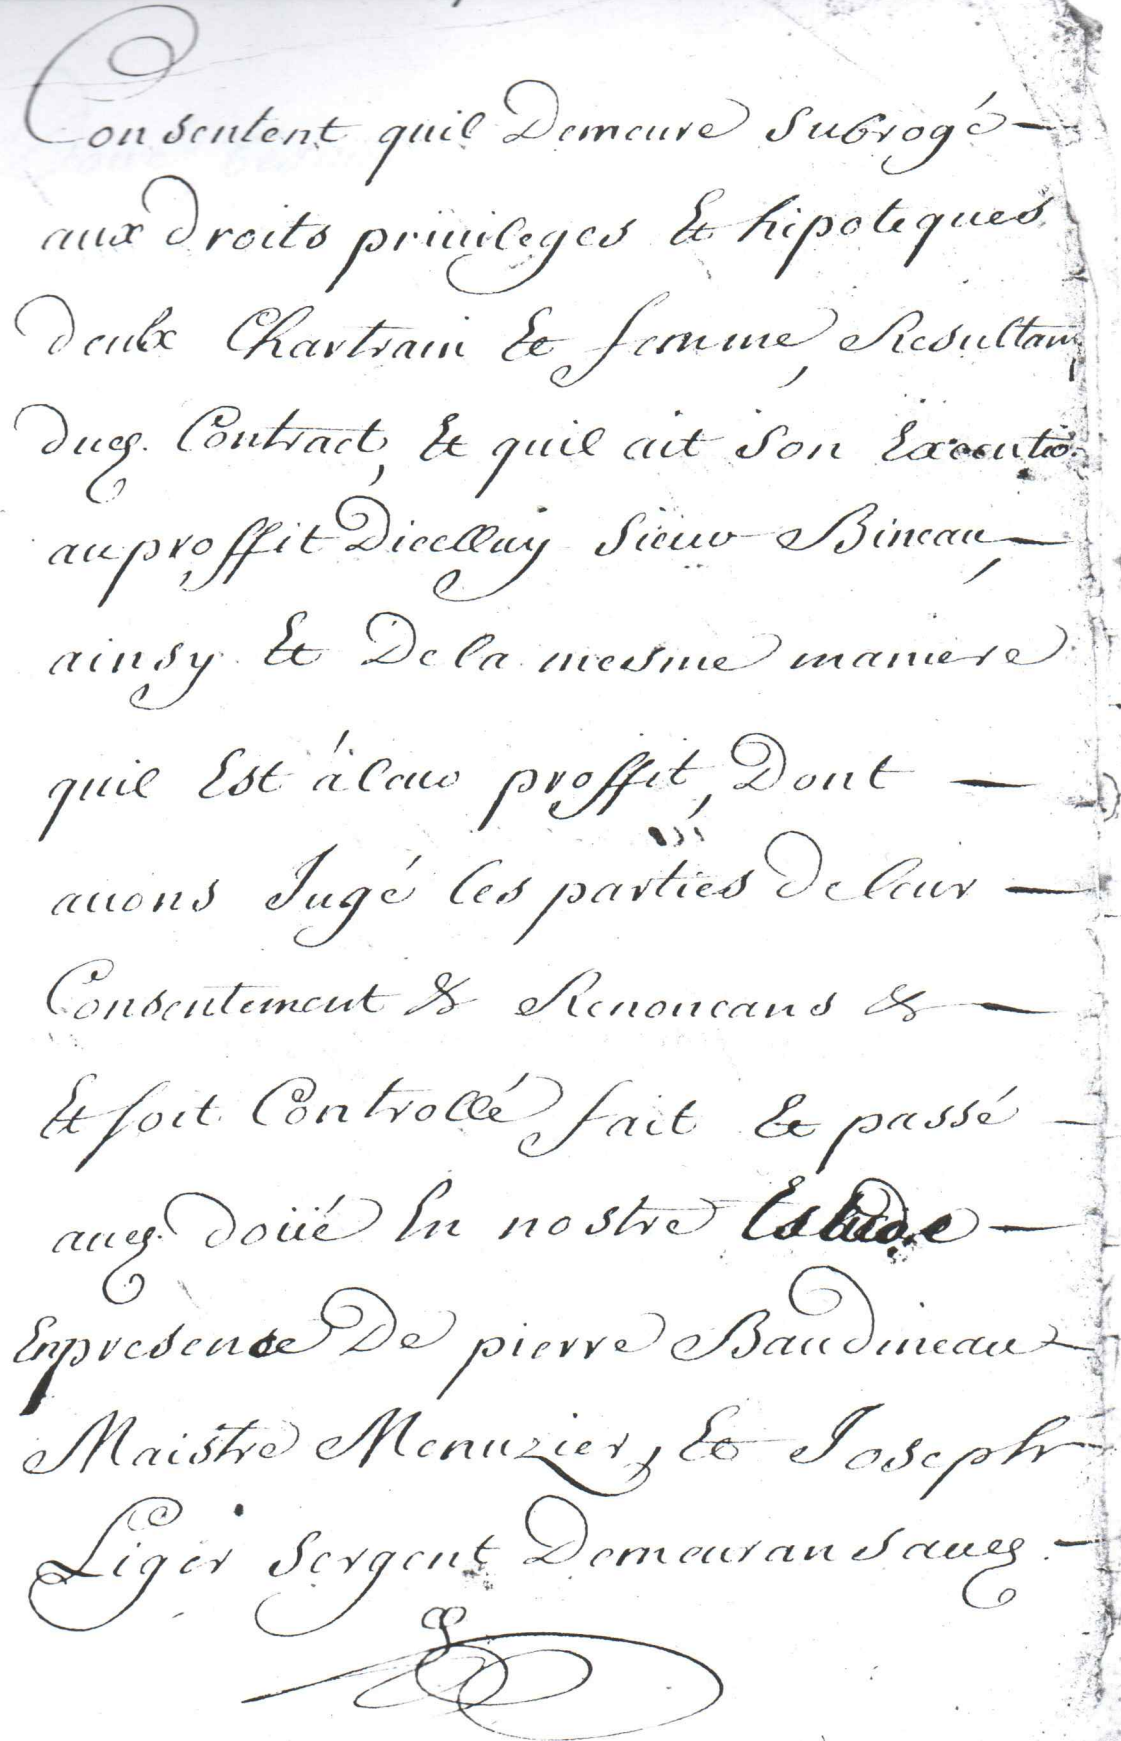 Consentent quil Demeure subrogé -
aux droits priuileges Et hipoteques
deulx Chartrain Et femme, Resultan,
dud. Contract, Et quil ait son Executio.
au proffit Dicelluy Sieur Bineau, -
ainsy Et De la mesme maniere
quil Est à leur proffit, Dont -
auons Jugé les parties de leur -
Consentement & Renoncans & -
Et soit Controllé fait Et passé -
aud. doüé En nostre Estude -
En presence De pierre Baudineau -
Maistre Menuzier, Et Joseph
Liger sergent Demeurans aud. -